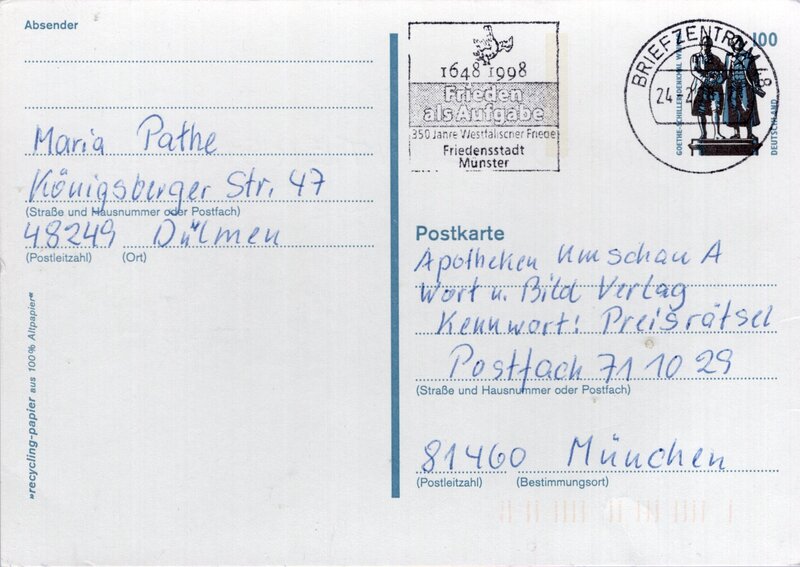 Absender
Maria Pathe
Königsberger Str. 47
(Straße und Hausnummer oder Postfach)
48249 Dülmen
(Postleitzahl) (Ort)
»recycling-papier aus 100% Altpapier«
1648 1998
Frieden
als Aufgabe
350 Jahre Westfälischer Friede
Friedensstadt
Münster
BRIEFZENTRUM 48
24
100
GOETHE-SCHILLER-DENKMAL
DEUTSCHLAND
Postkarte
Apotheken Umschau A
Wort u. Bild Verlag
Kennwort: Preisrätsel
Postfach 71 10 29
(Straße und Hausnummer oder Postfach)
81460 München
(Postleitzahl) (Bestimmungsort)